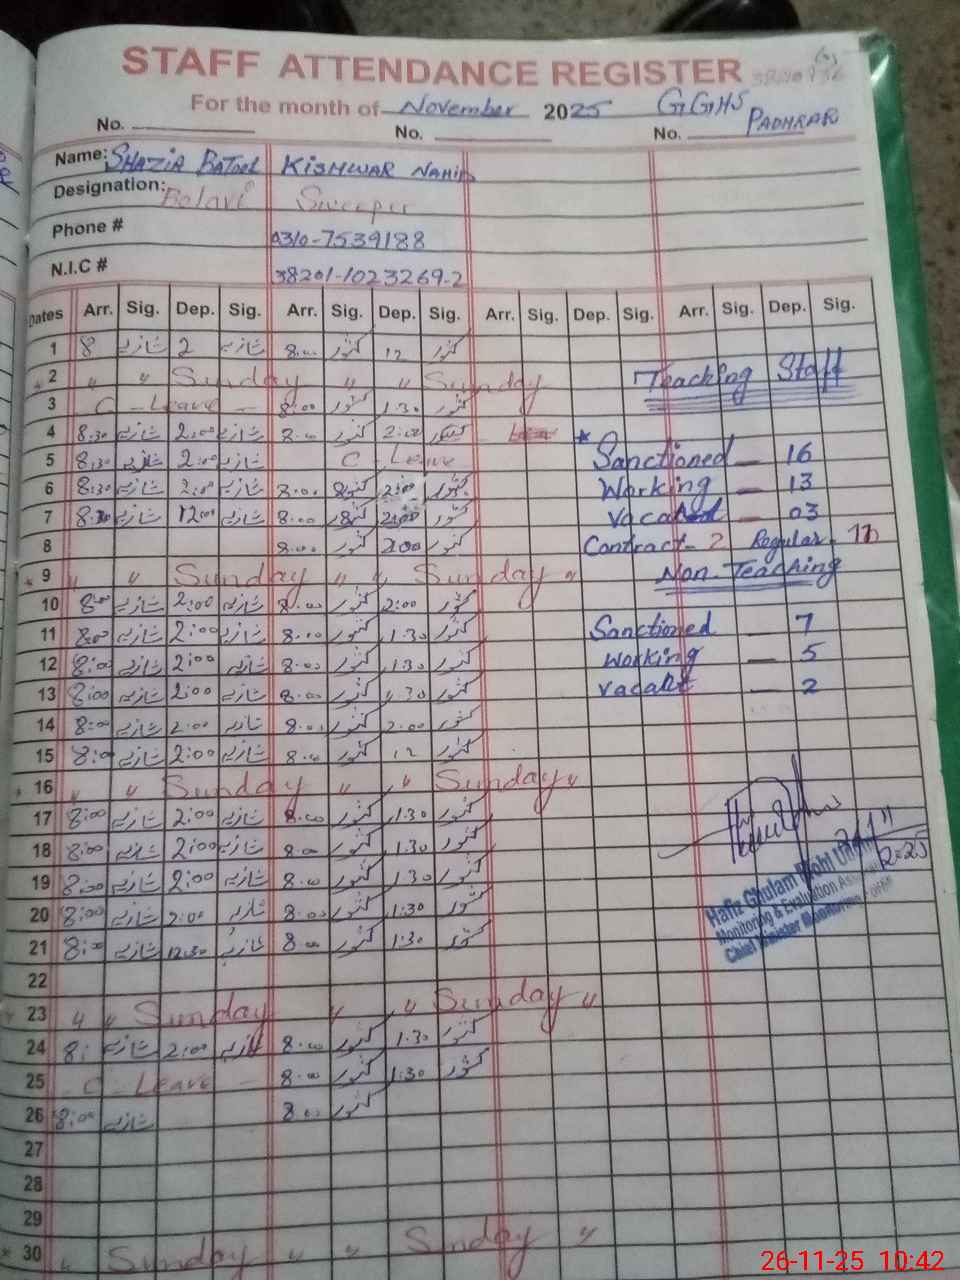 STAFF ATTENDANCE REGISTER
For the month of November 2025 GGHS PADHRAR
No. No. No.
Name: SHAZIA BATOOL KISHWAR NAHID
Designation: Sweeper
Phone # 0310-7539188
N.I.C # 38201-1023269-2
Dates Arr. Sig. Dep. Sig. Arr. Sig. Dep. Sig. Arr. Sig. Dep. Sig. Arr. Sig. Dep. Sig.
1 8 شازیہ 2 شازیہ 8:00 کشور 12 کشور
2 " " Sunday " " Sunday Teaching Staff
3 C - Leave - 8:00 کشور 1:30 کشور
4 8:30 شازیہ 2:00 شازیہ 8:00 کشور 2:00 کشور
5 8:30 شازیہ 2:00 شازیہ C - Leave Sanctioned - 16
6 8:30 شازیہ 2:00 شازیہ 8:00 کشور 2:00 کشور Working - 13
7 8:30 شازیہ 12:00 شازیہ 8:00 کشور 2:00 کشور - 03
8 8:00 کشور 2:00 کشور Contract - 2 Regular - 11
9 " " Sunday " " Sunday " Non. Teaching
10 8:00 شازیہ 2:00 شازیہ 8:00 کشور 2:00 کشور
11 8:00 شازیہ 2:00 شازیہ 8:00 کشور 1:30 کشور Sanctioned - 7
12 8:00 شازیہ 2:00 شازیہ 8:00 کشور 1:30 کشور Working - 5
13 8:00 شازیہ 2:00 شازیہ 8:00 کشور 1:30 کشور Vacant - 2
14 8:00 شازیہ 2:00 شازیہ 8:00 کشور 2:00 کشور
15 8:00 شازیہ 2:00 شازیہ 8:00 کشور 12 کشور
16 " " Sunday " " Sunday "
17 8:00 شازیہ 2:00 شازیہ 8:00 کشور 1:30 کشور
18 8:00 شازیہ 2:00 شازیہ 8:00 کشور 1:30 کشور
19 8:00 شازیہ 2:00 شازیہ 8:00 کشور 1:30 کشور
20 8:00 شازیہ 2:00 شازیہ 8:00 کشور 1:30 کشور
21 8:00 شازیہ 12:30 شازیہ 8:00 کشور 1:30 کشور
Hafiz Ghulam Mohi Uddin
Monitoring & Evaluation
Chief Minister Monitoring
22
23 " " Sunday " " Sunday "
24 8: شازیہ 2:00 شازیہ 8:00 کشور 1:30 کشور
25 C - Leave - 8:00 کشور 1:30 کشور
26 8:00 شازیہ 8:00 کشور
27
28
29
30 " Sunday " " Sunday "
26-11-25 10:42